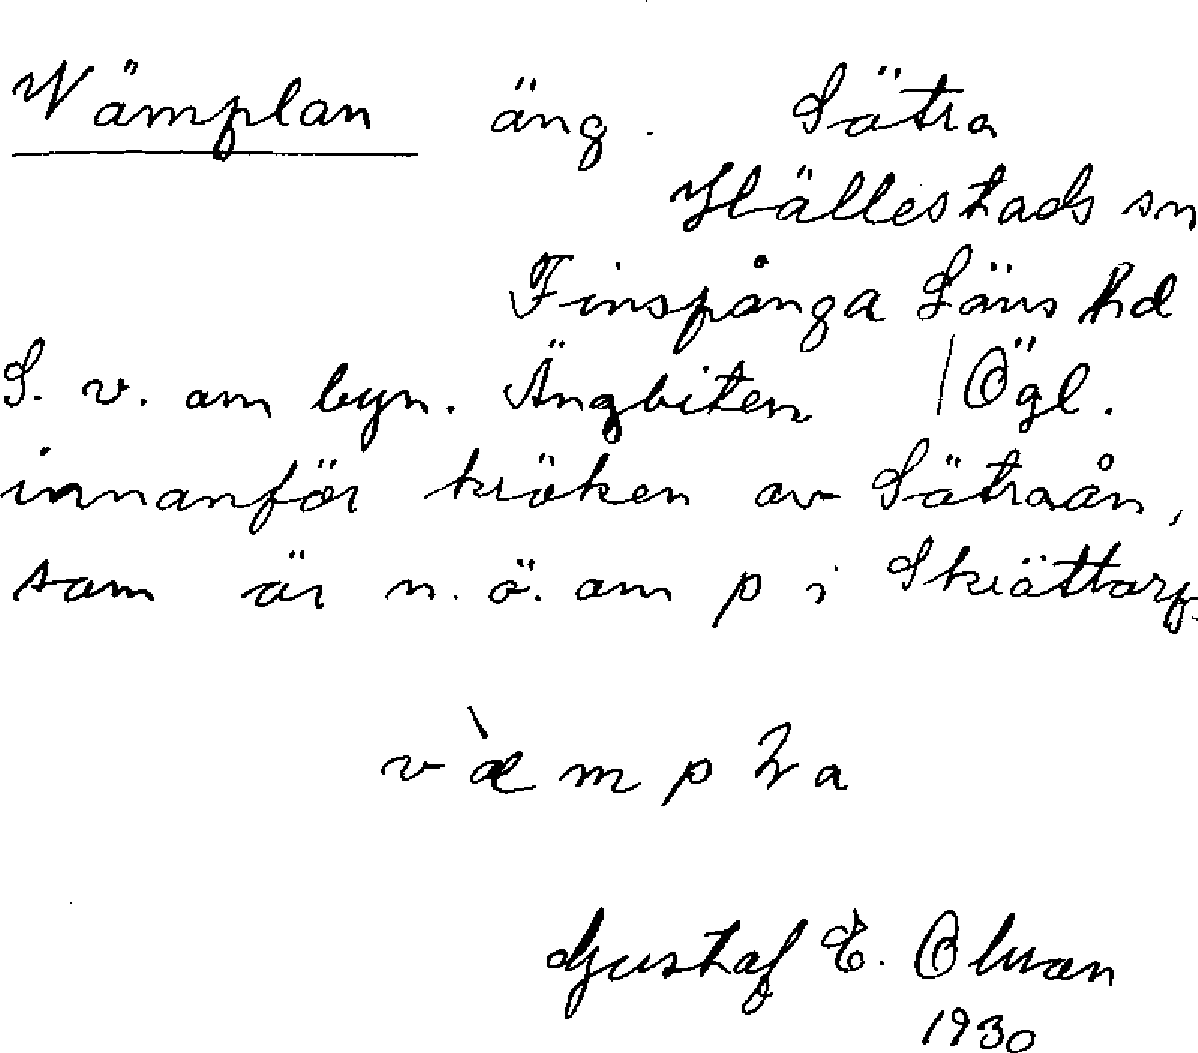 Wämplan äng. Sätra
Hällestads sn
Finspånga Läns hd
S. v. om byn. Ängbiten /Ögl.
innanför kröken av Sätraån,
som är n. ö. om p i Skrättorp.
v æ̀ m p L a
Gustaf E.
1930